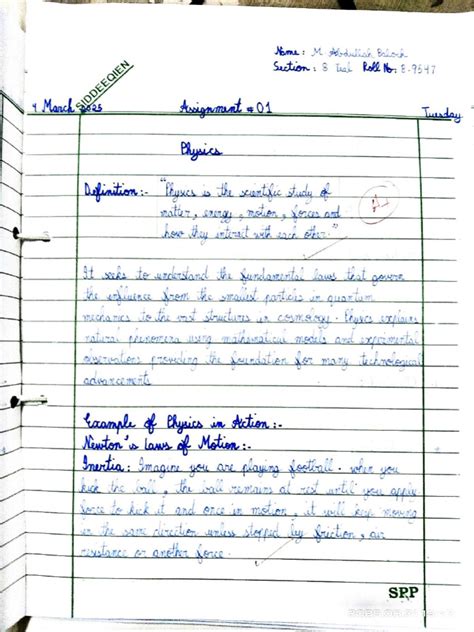 Name: M Abdullah
Section: B Roll No: E-9547
SIDDEEQIEN
4 March 2025 Assignment #01 Tuesday
Physics
Definition:- "Physics is the scientific study of
matter, energy, motion, forces and
how they interact with each other."
It seeks to understand the fundamental laws that govern
the from the smallest particles in quantum
mechanics to the vast structures in cosmology. Physics explains
natural phenomena using mathematical models and experimental
observations providing the foundation for many technological
advancements
Example of Physics in Action:-
Newton's Laws of Motion:-
Inertia: Imagine you are playing football. when you
kick the ball, the ball remains at rest until you apply
force to kick it and once in motion, it will keep moving
in the same direction unless stopped by friction, air
resistance or another force.
SPP